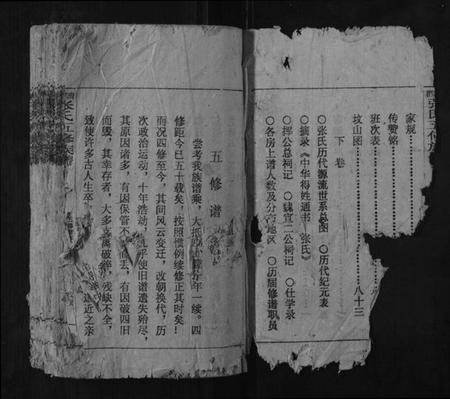 家规
传赞铭
班次表
坟山图 八十三
下卷
○张氏历代源流世系总图 ○历代纪元表
○摘录《中华得姓通书 张氏》
○挥公总祠记 ○魏宣二公祠记 ○仕学录
○各房上谱人数及分布地区 ○历届修谱职员
五修谱
尝考我族谱乘,大抵 年一续。四
修距今已五十载矣,按照惯例续修正其时矣!
而况四修至今,其间风云变迁,改朝换代,历
次政治运动,十年浩劫, 乎使旧谱遗失殆尽,
其原因诸多,有因保管不 而丢,有因破四旧
而毁,其幸存者,大多支离破碎,残缺不全,
致使许多古人生卒 近之亲
张氏五修族谱